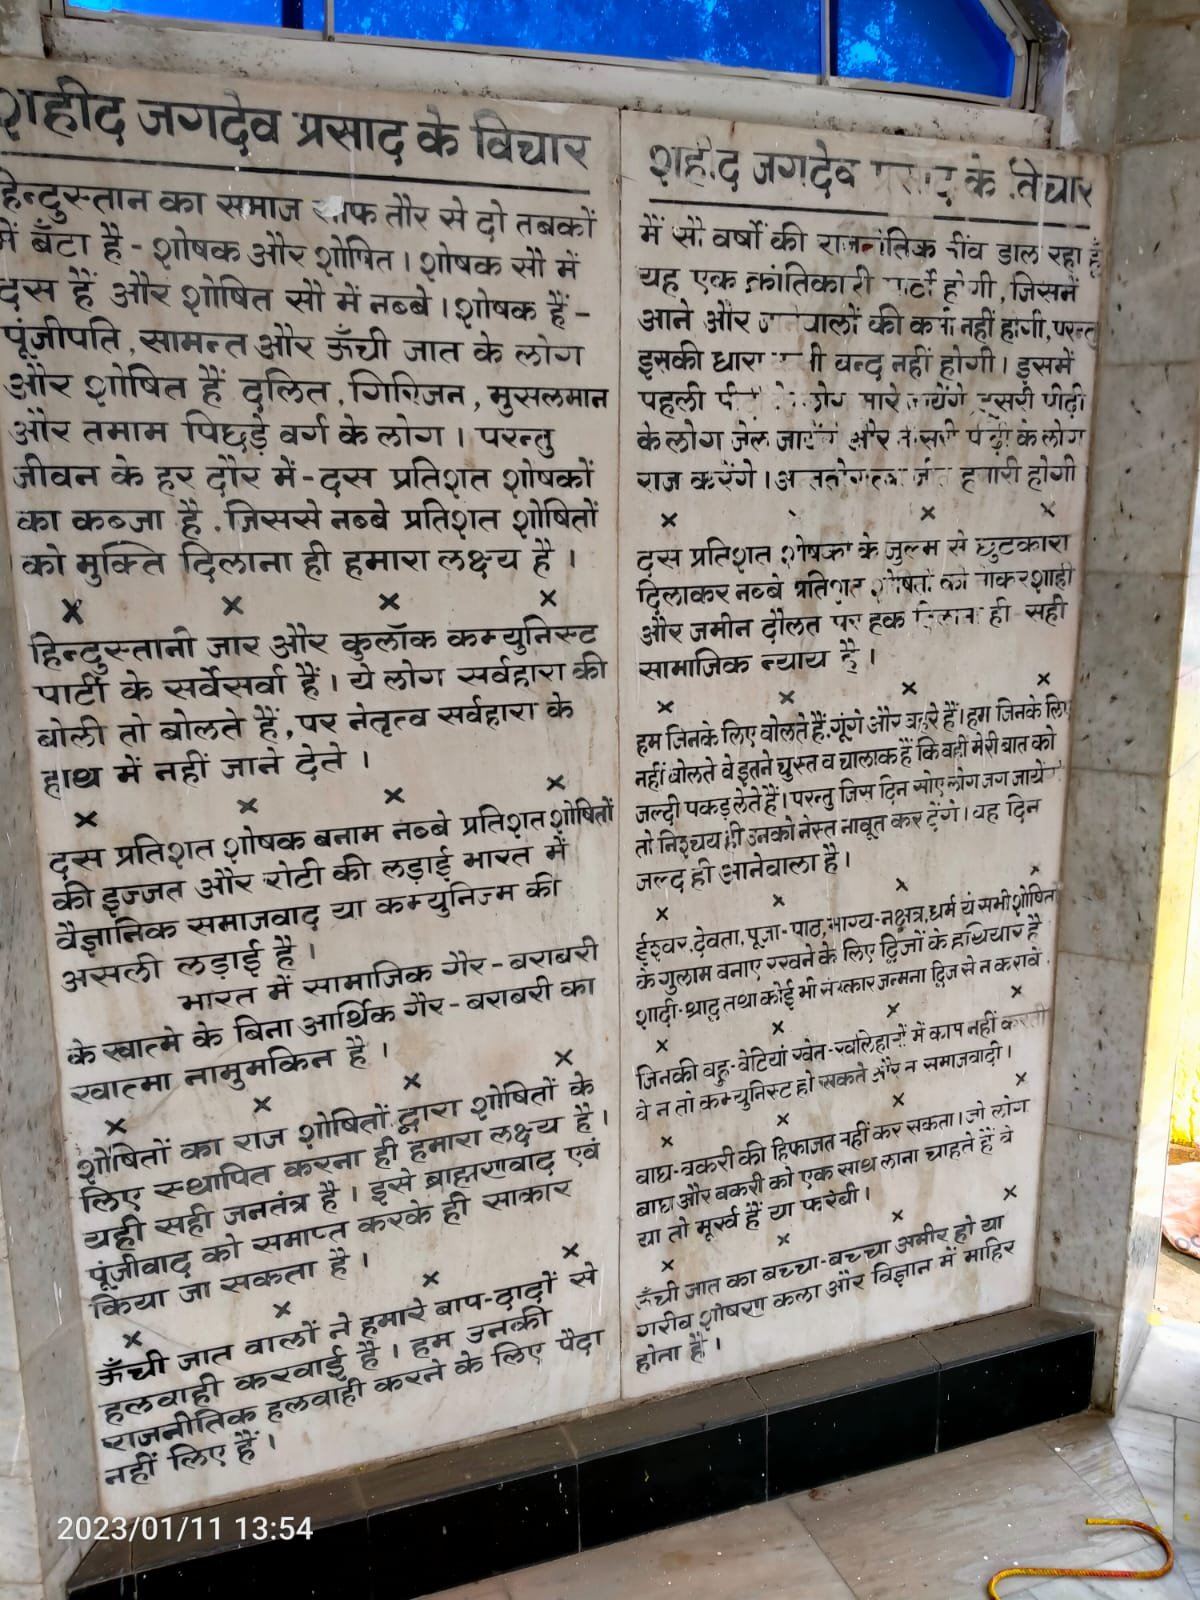 शहीद जगदेव प्रसाद के विचार
हिन्दुस्तान का समाज साफ तौर से दो तबकों
में बँटा है - शोषक और शोषित। शोषक सौ में
दस हैं और शोषित सौ में नब्बे। शोषक हैं -
पूंजीपति, सामन्त और ऊँची जात के लोग
और शोषित हैं दलित, गिरिजन, मुसलमान
और तमाम पिछड़े वर्ग के लोग। परन्तु
जीवन के हर दौर में - दस प्रतिशत शोषकों
का कब्जा है, जिससे नब्बे प्रतिशत शोषितों
को मुक्ति दिलाना ही हमारा लक्ष्य है।
× × × ×
हिन्दुस्तानी जार और कुलॉक कम्युनिस्ट
पार्टी के सर्वेसर्वा हैं। ये लोग सर्वहारा की
बोली तो बोलते हैं, पर नेतृत्व सर्वहारा के
हाथ में नहीं जाने देते।
× × × ×
दस प्रतिशत शोषक बनाम नब्बे प्रतिशत शोषितों
की इज्जत और रोटी की लड़ाई भारत में
वैज्ञानिक समाजवाद या कम्युनिज्म की
असली लड़ाई है।
भारत में सामाजिक गैर - बराबरी
के खात्मे के बिना आर्थिक गैर - बराबरी का
खात्मा नामुमकिन है।
× × × ×
शोषितों का राज शोषितों द्वारा शोषितों के
लिए स्थापित करना ही हमारा लक्ष्य है।
यही सही जनतंत्र है। इसे ब्राह्मणवाद एवं
पूंजीवाद को समाप्त करके ही साकार
किया जा सकता है।
× × × ×
ऊँची जात वालों ने हमारे बाप-दादों से
हलवाही करवाई है। हम उनकी
राजनीतिक हलवाही करने के लिए पैदा
नहीं लिए हैं।
शहीद जगदेव प्रसाद के विचार
मैं सौ वर्षों की राजनीतिक नींव डाल रहा हूँ
यह एक क्रांतिकारी पार्टी होगी, जिसमें
आने और जानेवालों की कमी नहीं होगी, परन्तु
इसकी धारा कभी बन्द नहीं होगी। इसमें
पहली पीढ़ी के लोग मारे जायेंगे, दूसरी पीढ़ी
के लोग जेल जायेंगे और तीसरी पीढ़ी के लोग
राज करेंगे। अन्ततोगत्वा जीत हमारी होगी
× × ×
दस प्रतिशत शोषकों के जुल्म से छुटकारा
दिलाकर नब्बे प्रतिशत शोषितों को नौकरशाही
और जमीन दौलत पर हक दिलाना ही सही
सामाजिक न्याय है।
× × × ×
हम जिनके लिए बोलते हैं, गूंगे और बहरे हैं। हम जिनके लिए
नहीं बोलते वे इतने चुस्त व चालाक हैं कि वही मेरी बात को
जल्दी पकड़ लेते हैं। परन्तु जिस दिन सोए लोग जग जायेंगे
तो निश्चय ही उनको नेस्त नाबूत कर देंगे। वह दिन
जल्द ही आनेवाला है।
× × × ×
ईश्वर, देवता, पूजा-पाठ, भाग्य-नक्षत्र, धर्म ये सभी शोषितों
के गुलाम बनाए रखने के लिए द्विजों के हथियार है
शादी-श्राद्ध तथा कोई भी संस्कार जन्मना द्विज से न करावें
× × × ×
जिनकी बहु-बेटियां खेत-खलिहानों में काम नहीं करती
वे न तो कम्युनिस्ट हो सकते और न समाजवादी।
× × × ×
बाघ-बकरी की हिफाजत नहीं कर सकता। जो लोग
बाघ और बकरी को एक साथ लाना चाहते हैं वे
या तो मूर्ख हैं या फरेबी।
× × × ×
ऊँची जात का बच्चा-बच्चा अमीर हो या
गरीब शोषण कला और विज्ञान में माहिर
होता है।
2023/01/11 13:54